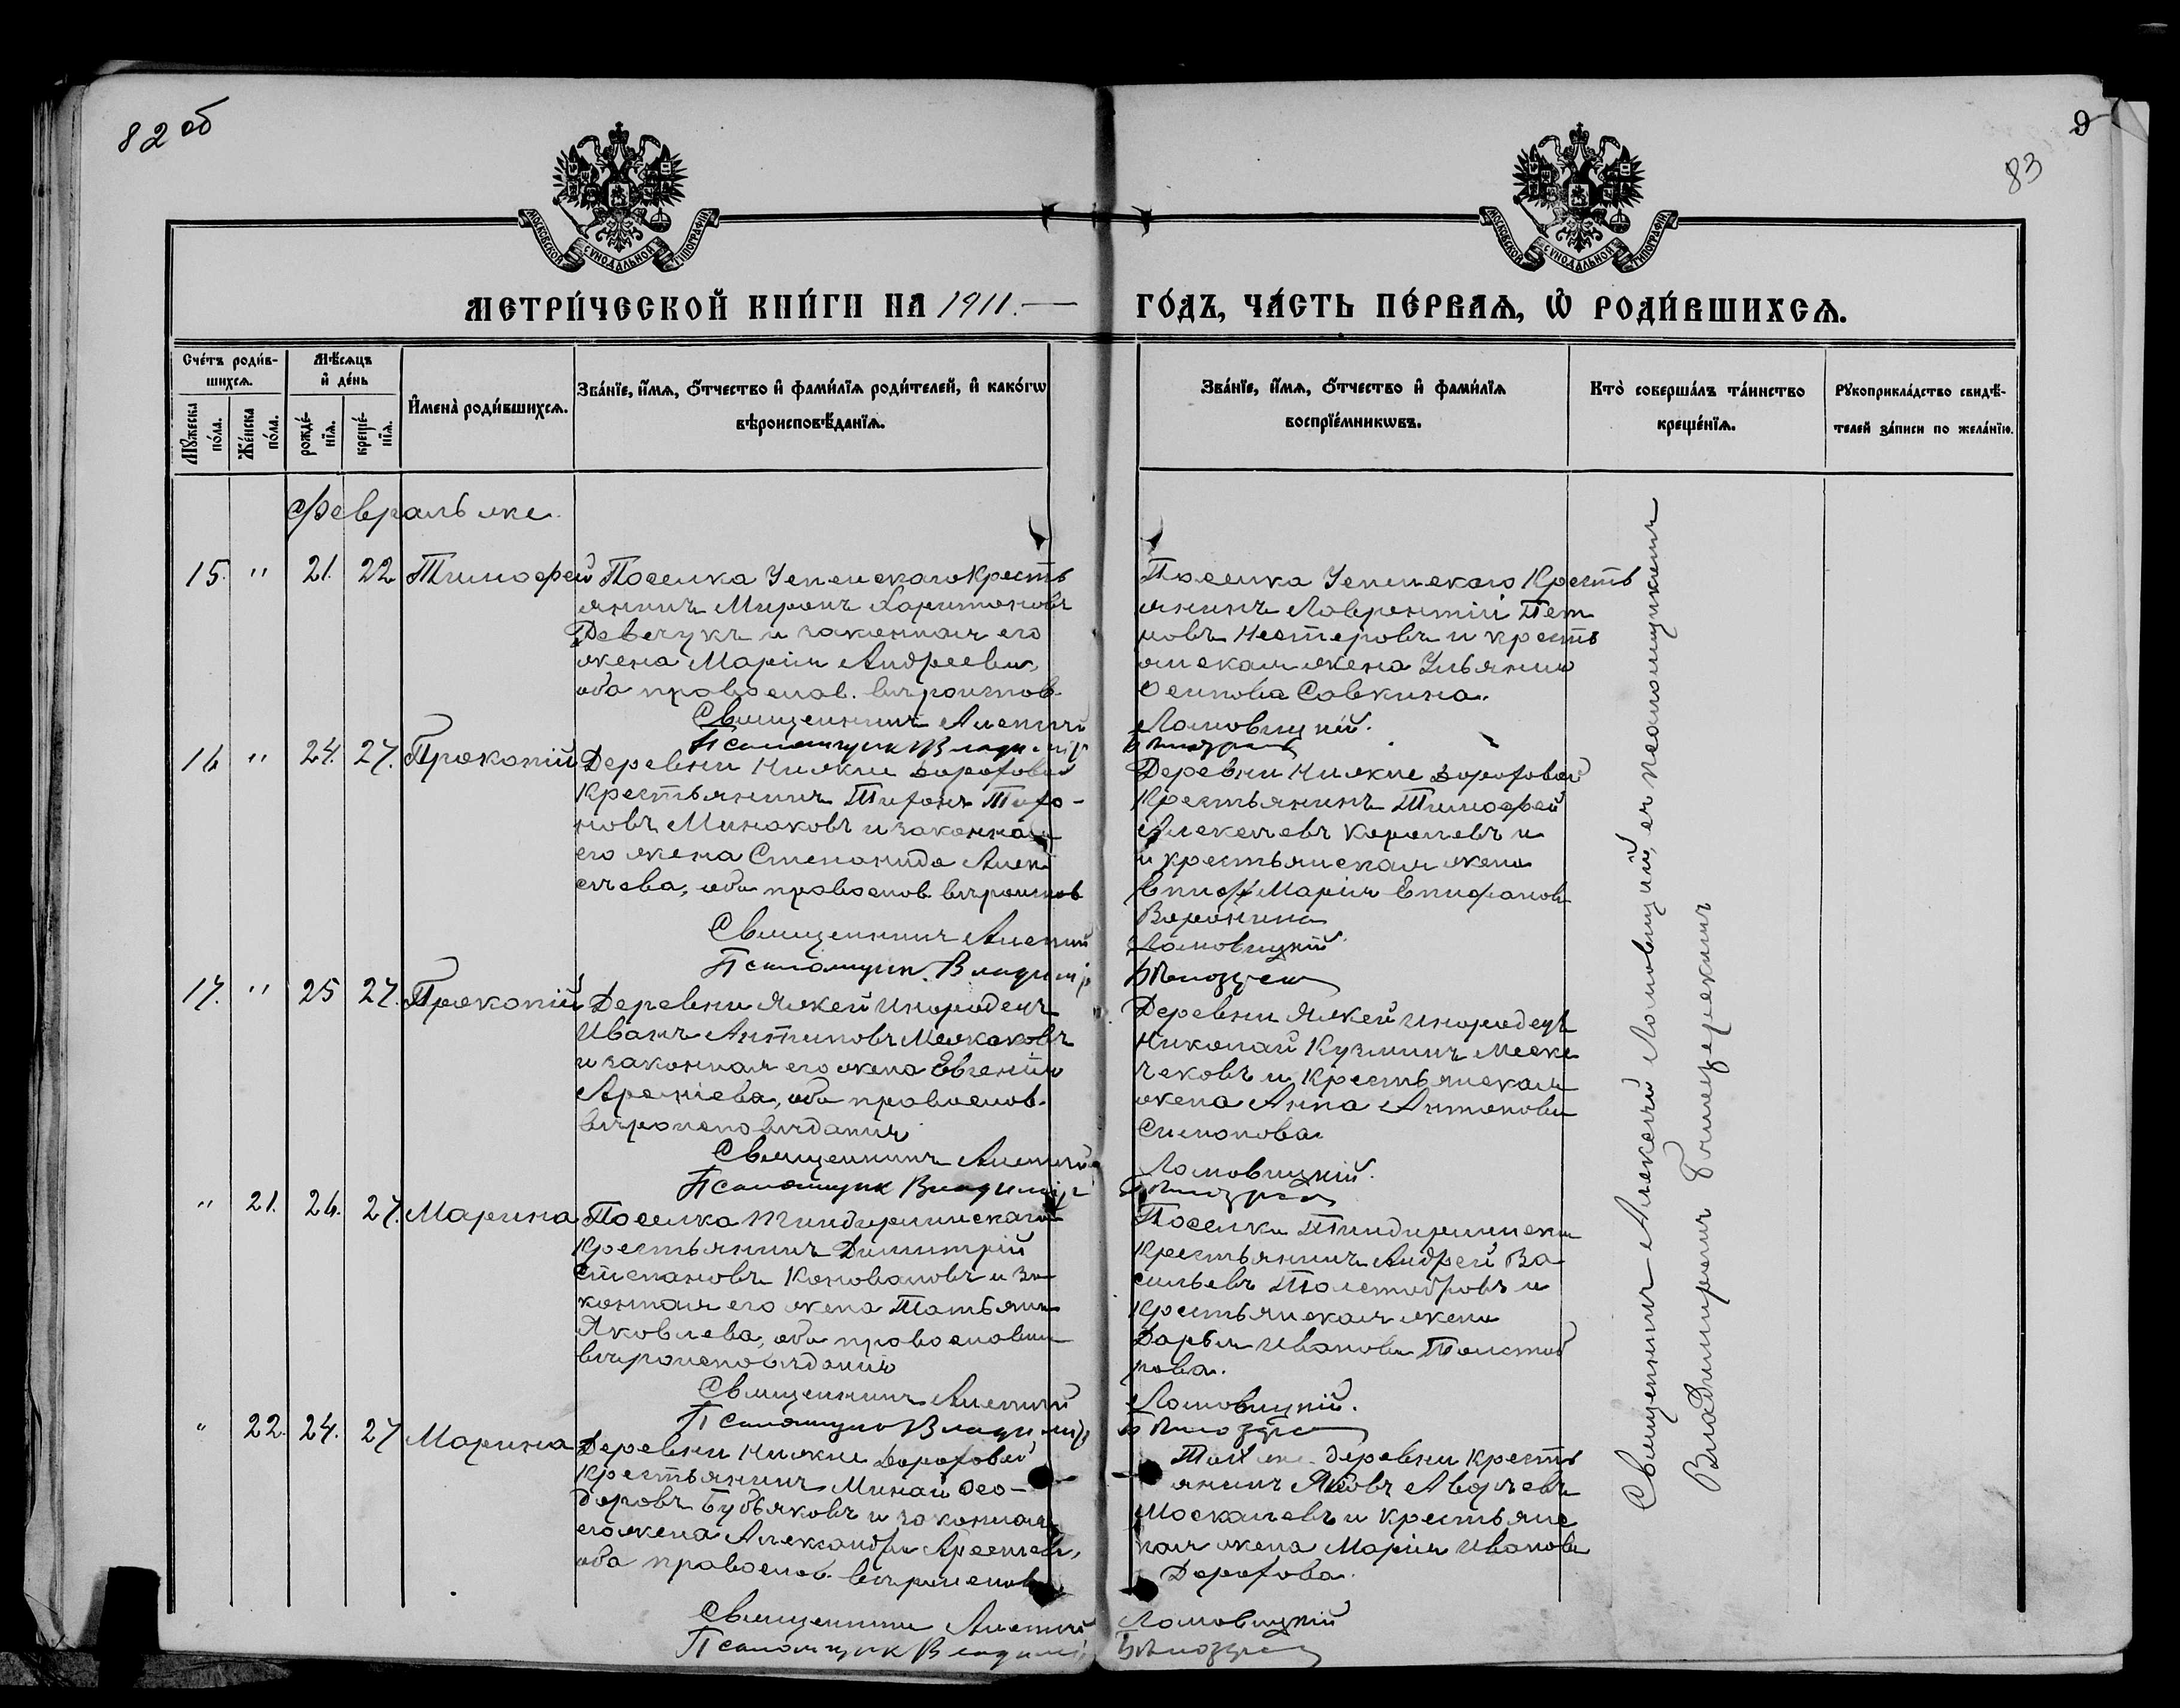 82 об
9
83
МОСКОВСКОЙ СУНОДАЛЬНОЙ ТИПОГРАФІИ
МОСКОВСКОЙ СУНОДАЛЬНОЙ ТИПОГРАФІИ
МЕТРИ́ЧЕСКОЙ КНИ́ГИ НА 1911. —
ГО́ДЪ, ЧА́СТЬ ПЕ́РВАѦ, Ѡ҆ РОДИ́ВШИХСѦ.
Сче́тъ роди́в-
шихсѧ.
Мѣ́сѧцъ
и҆ де́нь
Мꙋ́жеска по́ла.
Же́нска по́ла.
рожде́-
нїѧ.
креще́-
нїѧ.
И҆мена̀ роди́вшихсѧ.
Зва́нїе, и҆́мѧ, ѻ҆́тчество и҆ фами́лїѧ роди́телей, и҆ како́гѡ
вѣроисповѣ́данїѧ.
Зва́нїе, и҆́мѧ, ѻ҆́тчество и҆ фами́лїѧ
воспрїе́мникѡвъ.
Кто̀ соверша́лъ та́инство
креще́нїѧ.
Рꙋкоприкла́дство свидѣ́-
телей за́писи по жела́нїю.
Февраль мѣс.
15. " 21. 22 Тимофей
Поселка Успенскаго Кресть
янинъ Миронъ Харитоновъ
и законная его
жена Марія Андреева,
оба православ. вѣроиспов.
Священникъ Алексѣй
Псаломщик Владимір
Поселка Успенскаго Кресть
янинъ Лаврентій Пет
ровъ Нестеровъ и кресть
янская жена Ульяния
Осипова Савкина.
Ломовицкій.
16 " 24. 27. Прокопій
Деревни Нижне Дорофовой
Крестьянинъ Тифонъ Тифо-
новъ Минаковъ и законная
его жена Степанида Алек
сѣева, оба православ. вѣроиспов
Священникъ Алексѣй
Псаломщик. Владимір
Деревни Нижне Дорофовой
Крестьянинъ Тимофей
Алексѣевъ Королевъ и
и крестьянская жена
Марія Епифанова
Воронина
Ломовицкій
17. " 25 27. Прокопій
Деревни Инородецъ
Иванъ Антиповъ
и законная его жена Евгенія
оба православ.
вѣроисповѣданія
Священникъ Алексѣй
Псаломщик Владимір
Деревни Инородецъ
Николай Кузминъ
и Крестьянская
жена Анна Антонова
Симонова.
Ломовицкій.
" 21. 26. 27. Марина
Поселка
Крестьянинъ Димитрій
Степановъ Коноваловъ и за
конная его жена Татьяна
Яковлева, оба православна
вѣроисповѣданія
Священникъ Алексѣй
Псаломщик Владимір
Поселка
Крестьянинъ Андрей Ва
сильевъ и
Крестьянская жена
Дарья Иванова
рова.
Ломовицкій.
" 22. 24. 27 Марина
Деревни Нижне Дорофовой
Крестьянинъ Минай Фео-
доровъ Будьяковъ и законная
его жена Александра
оба православ. вѣроиспов
Священникъ Алексѣй
Псаломщик Владимір
Той же деревни Кресть
янинъ Яковъ
Москалевъ и крестьянс
кая жена Марія Иванова
Дорофова.
Ломовицкій
Священникъ Алексѣй Ломовицкій, съ псаломщикомъ
Владиміромъ